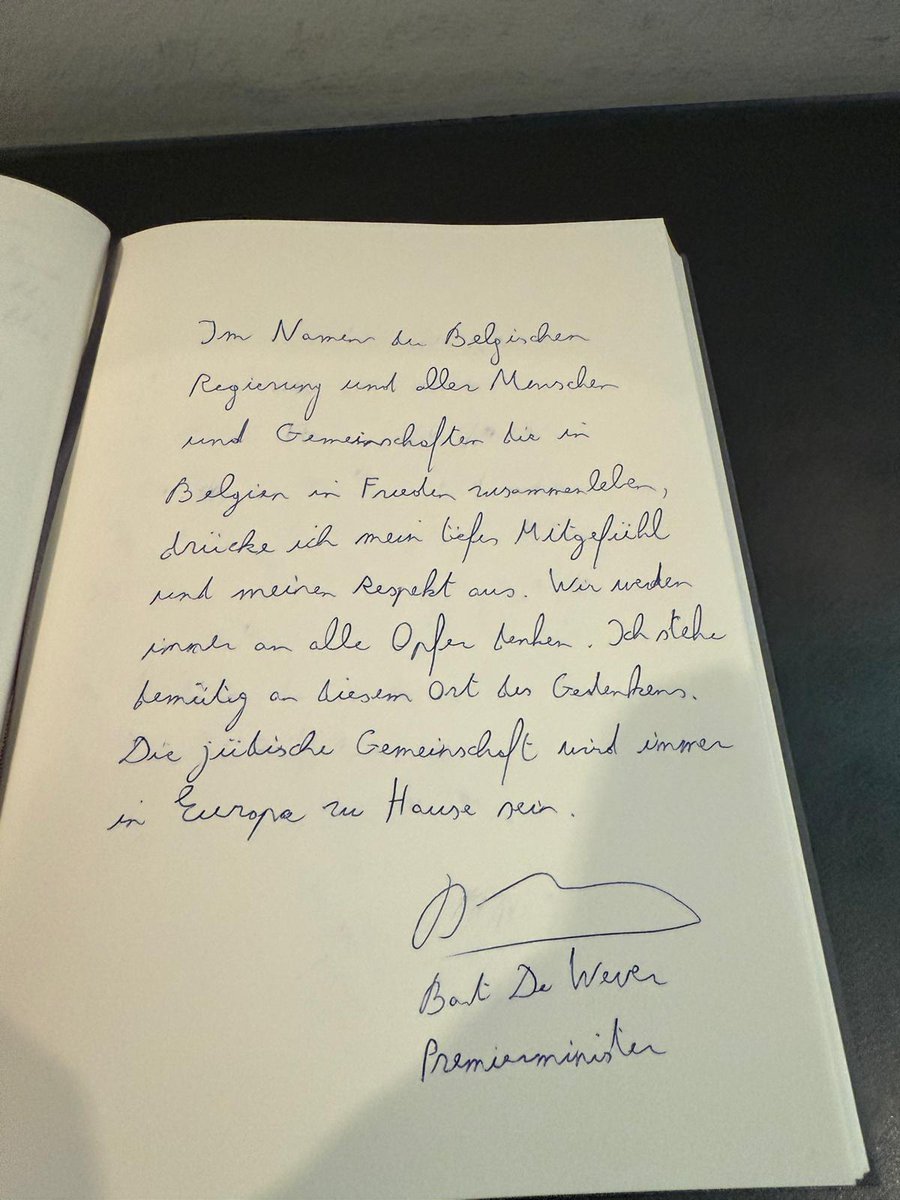 Im Namen der Belgischen
Regierung und aller Menschen
und Gemeinschaften die in
Belgien in Frieden zusammenleben,
drücke ich mein tiefes Mitgefühl
und meinen Respekt aus. Wir werden
immer an alle Opfer denken. Ich stehe
demütig an diesem Ort des Gedenkens.
Die jüdische Gemeinschaft wird immer
in Europa zu Hause sein.
Bart De Wever
Premierminister